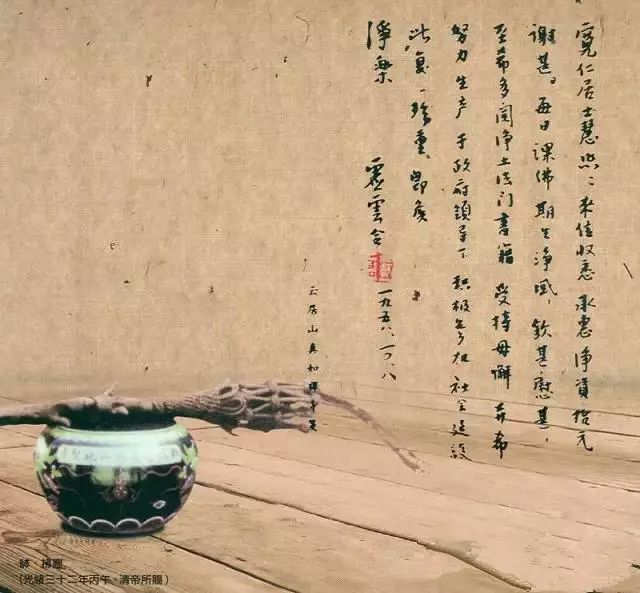 寬仁居士慧照：来信收悉 承惠净资拾元
谢甚。每日课佛期生净域，钦甚慰甚，
至希多阅净土法门书籍 受持毋懈 并希
努力生产 于政府领导下 积极参加社会建设
此复 珍重 即候
淨樂 虚雲合
一九五八、一〇、八
云居山真如禅寺笺
鉢 拂塵
(光緒三十二年丙午·清帝所賜)